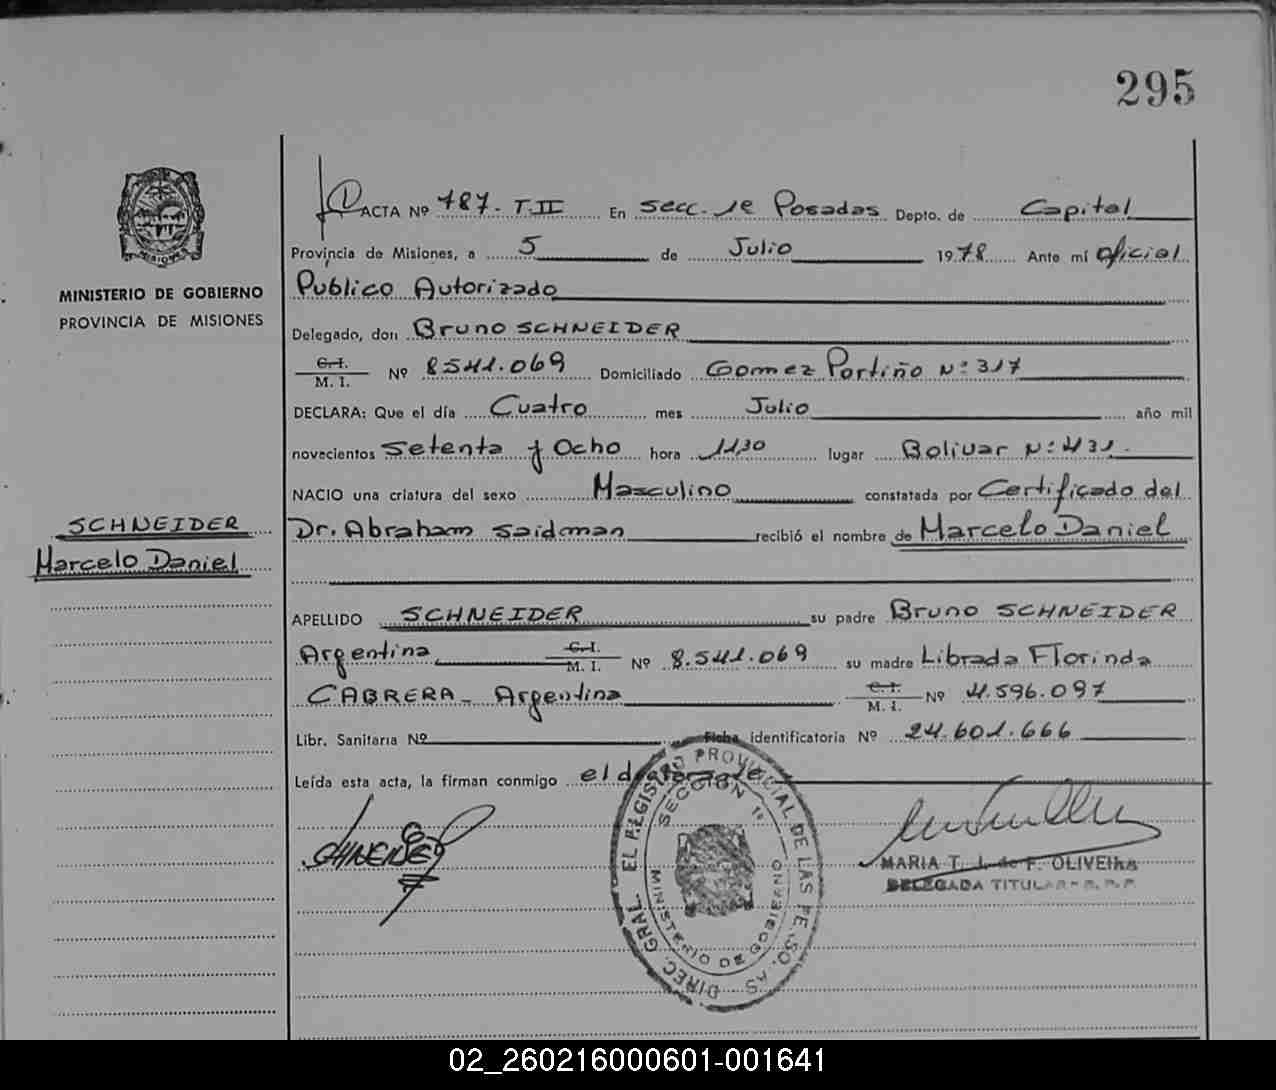 295
ACTA Nº 787. T.II En Secc. 1e Posadas Depto. de Capital
Provincia de Misiones, a 5 de Julio 1978 Ante mí Oficial
MINISTERIO DE GOBIERNO
PROVINCIA DE MISIONES
Publico Autorizado
Delegado, don Bruno SCHNEIDER
C.I. M. I. Nº 8541.069 Domiciliado Gomez Portiño Nº 317
DECLARA: Que el día Cuatro mes Julio año mil
novecientos Setenta y Ocho hora 11,30 lugar Bolivar Nº 431.
NACIO una criatura del sexo Masculino constatada por Certificado del
SCHNEIDER
Marcelo Daniel
Dr. Abraham Saidman recibió el nombre de Marcelo Daniel
APELLIDO SCHNEIDER su padre Bruno SCHNEIDER
Argentina C.I. M. I. Nº 8.541.069 su madre Librada Florinda
CABRERA - Argentina C.I. M. I. Nº 4.596.097
Libr. Sanitaria Nº Ficha identificatoria Nº 24.601.666
Leída esta acta, la firman conmigo el declarante
DIREC. GRAL. EL REGISTRO PROVINCIAL DE LAS PE.SO.AS
SECCION 1ª
MINISTERIO DE GOBIERNO
MARIA T. J. de F. OLIVEIRA
DELEGADA TITULAR - R. P. P.
02_260216000601-001641